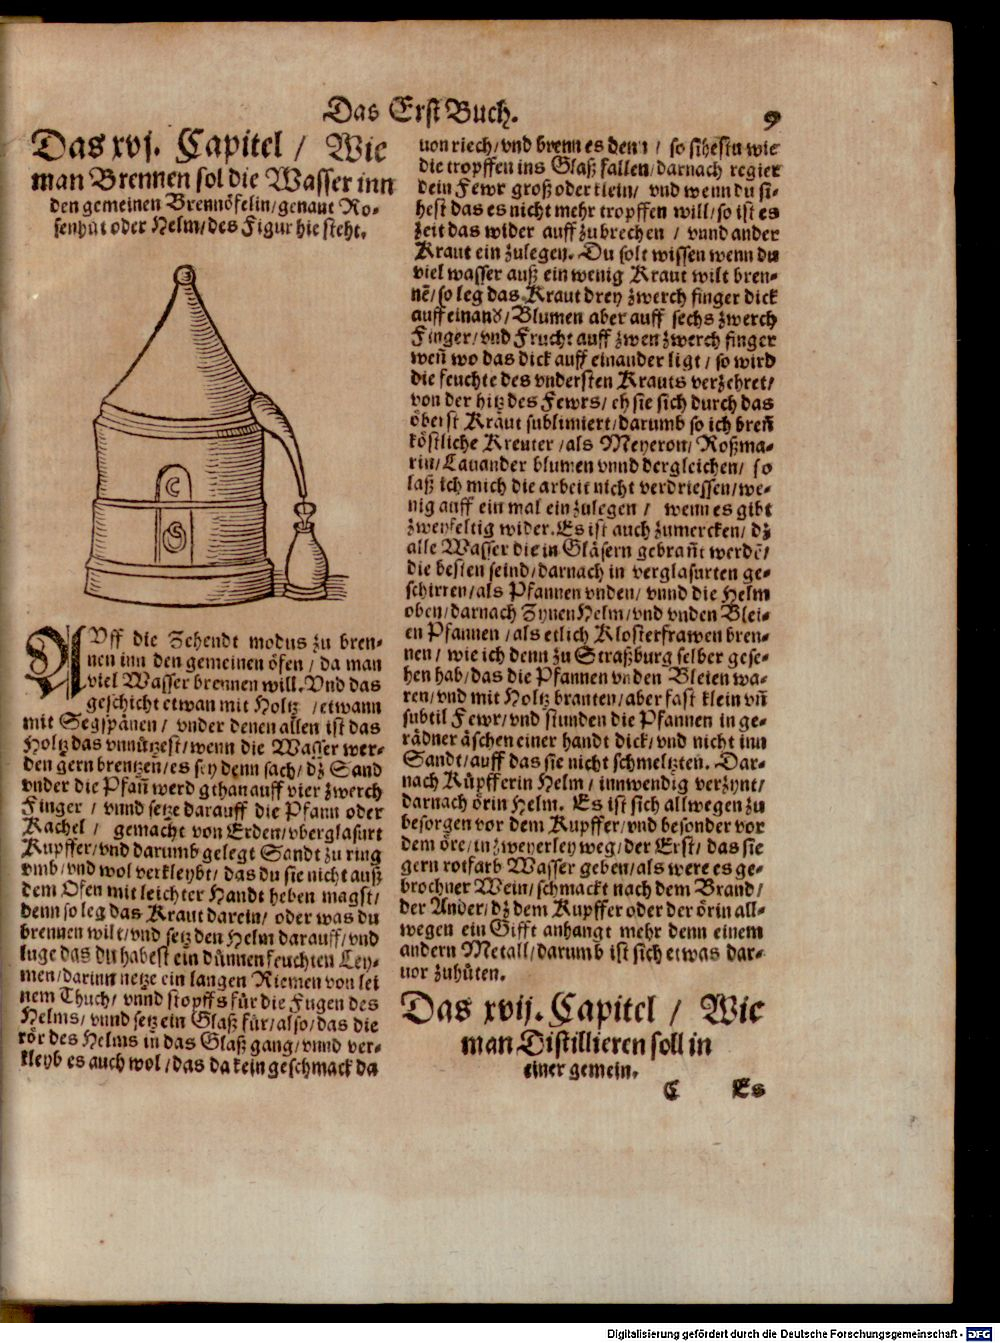 Das Erst Buch.
9
Das xvj. Capitel / Wie
man Brennen sol die Wasser inn
den gemeinen Brennöfelin/genant Ro-
senhüt oder Helm/des Figur hie steht.
AUff die Zehendt modus zu bren-
nen inn den gemeinen öfen / da man
viel Wasser brennen will. Vnd das
geschicht etwan mit Holtz / etwann
mit Segspänen / vnder denen allen ist das
Holtz das vnnützest/wenn die Wasser wer-
den gern brentzen/es sey denn sach/dz Sand
vnder die Pfañ werd gthan auff vier zwerch
Finger / vnnd setze darauff die Pfann oder
Kachel / gemacht von Erden/vberglasurt
Kupffer/vnd darumb gelegt Sandt zu ring
vmb/vnd wol verkleybt/das du sie nicht auß
dem Ofen mit leichter Handt heben magst/
denn so leg das Kraut darein/ oder was du
brennen wilt/vnd setz den Helm darauff/vnd
luge das du habest ein dünnen feuchten Ley-
men/darinn netze ein langen Riemen von lei
nem Thuch/ vnnd stopffs für die Fugen des
Helms/vnnd setz ein Glaß für/also/das die
rör des Helms in das Glaß gang/vnnd ver-
kleyb es auch wol/das da kein geschmack da
uon riech/vnd brenn es denn / so sihestu wie
die tropffen ins Glaß fallen/darnach regier
dein Fewr groß oder klein/ vnd wenn du si-
hest das es nicht mehr tropffen will/so ist es
zeit das wider auff zubrechen / vnnd ander
Kraut ein zulegen. Du solt wissen wenn du
viel wasser auß ein wenig Kraut wilt bren-
nẽ/so leg das Kraut drey zwerch finger dick
auff einand/Blumen aber auff sechs zwerch
Finger/vnd Frucht auff zwen zwerch finger
weñ wo das dick auff einander ligt/so wird
die feuchte des vndersten Krauts verzehret/
von der hitz des Fewrs/eh sie sich durch das
öberst Kraut sublimiert/darumb so ich breñ
köstliche Kreuter/als Meyeron/Roßma-
rin/Lauander blumen vnnd dergleichen/ so
laß ich mich die arbeit nicht verdriessen/we-
nig auff ein mal ein zulegen / wenn es gibt
zweyfeltig wider. Es ist auch zumercken/dz
alle Wasser die in Gläsern gebrañt werdẽ/
die besten seind/darnach in verglasurten ge-
schirren/als Pfannen vnden/ vnnd die Helm
oben/darnach Zynen Helm/vnd vnden Blei-
en Pfannen/als etlich Klosterfrawen bren-
nen / wie ich denn zu Straßburg selber gese-
hen hab/das die Pfannen vnden Bleien wa-
ren/vnd mit Holtz branten/aber fast klein vñ
subtil Fewr/vnd stunden die Pfannen in ge-
rädner äschen einer handt dick/vnd nicht inn
Sandt/auff das sie nicht schmeltzten. Dar-
nach Küpfferin Helm / innwendig verzynt/
darnach örin Helm. Es ist sich allwegen zu
besorgen vor dem Kupffer/vnd besonder vor
dem öre/in zweyerley weg/der Erst/das sie
gern rotfarb Wasser geben/als were es ge-
brochner Wein/schmackt nach dem Brand/
der Ander/dz dem Kupffer oder der örin all-
wegen ein Gifft anhangt mehr denn einem
andern Metall/darumb ist sich etwas dar-
uor zuhüten.
Das xvij. Capitel / Wie
man Distillieren soll in
einer gemein.
C Es
Digitalisierung gefördert durch die Deutsche Forschungsgemeinschaft - DFG